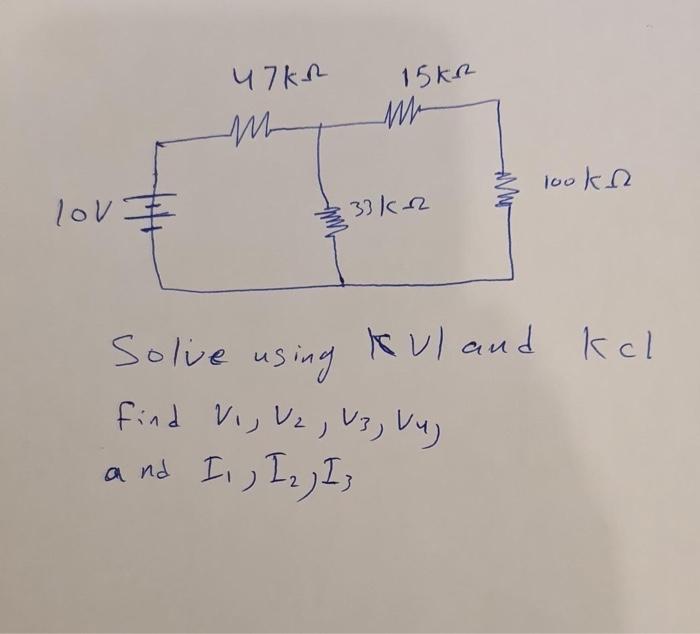 47kΩ 15kΩ
10V 33kΩ 100kΩ
Solve using KVl and kcl
find V₁, V₂, V₃, V₄,
and I₁, I₂, I₃